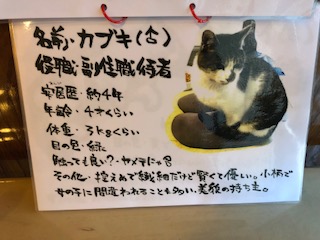 名前・カブキ(♂)
役職・副住職侍者
安医歴・約4年
年齢・4才くらい
体重・3kgくらい
目の色・緑
触っても良い?・ヤメテにゃ
その他・控えめで繊細だけど賢くて優しい。小柄で
女の子に間違われることも多い、美猫の持ち主。